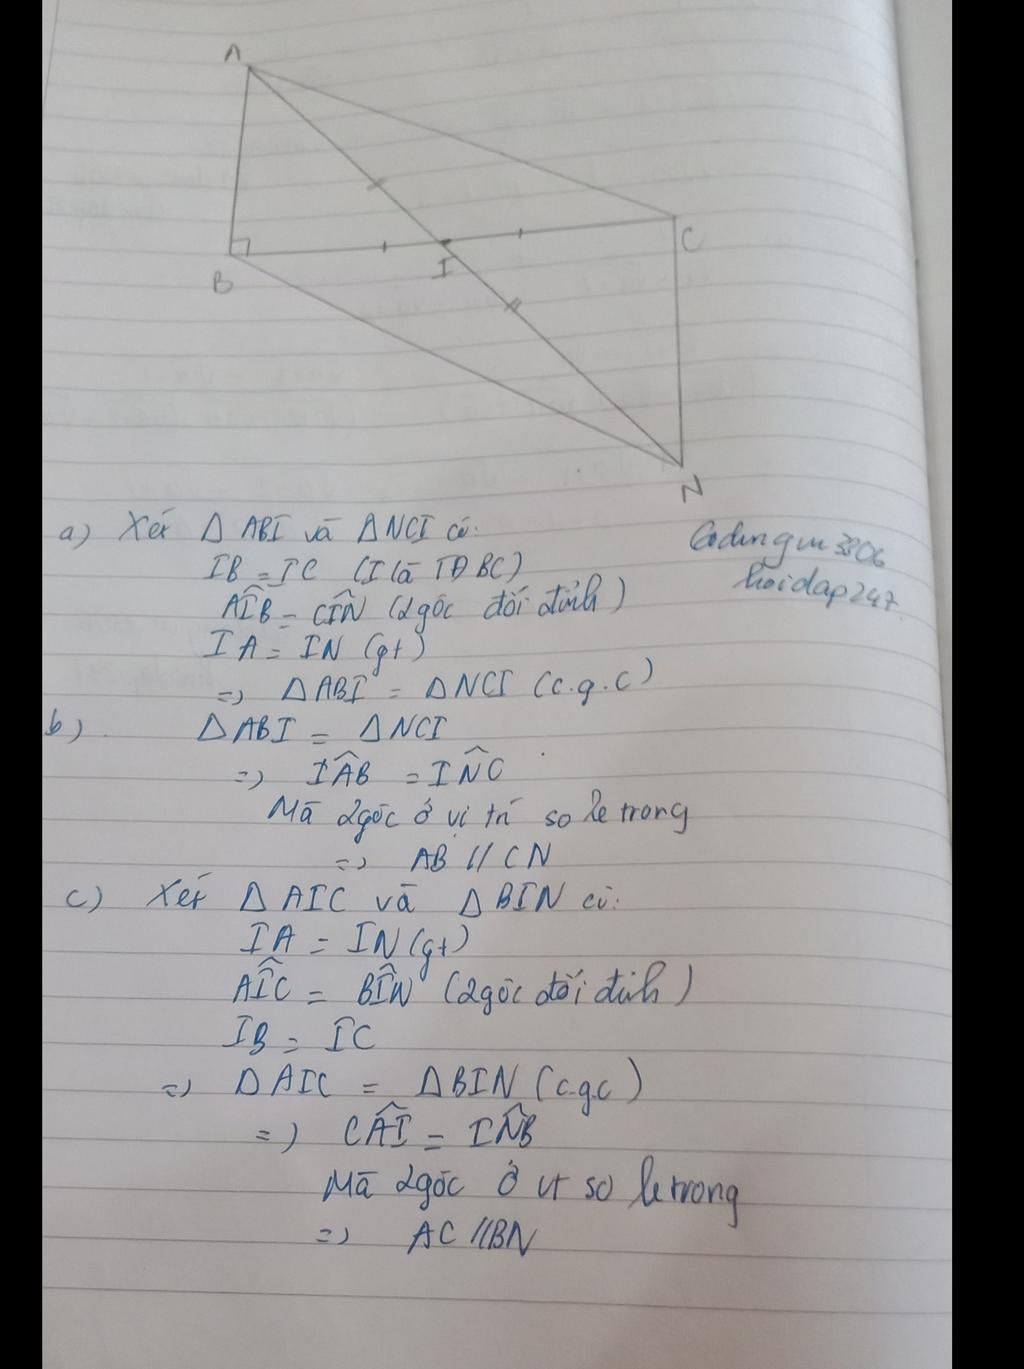 A
C
B
I
N
a) Xét Δ ABI và ΔNCI có:
IB = IC (I là TĐ BC)
AÎB = CÎN (2góc đối đỉnh)
IA = IN (gt)
=> ΔABI = ΔNCI (c.g.c)
hoidap247
b) ΔABI = ΔNCI
=> IÂB = IN̂C
Mà 2góc ở vị trí so le trong
=> AB // CN
c) Xét ΔAIC và ΔBIN có:
IA = IN (gt)
AÎC = BÎN (2góc đối đỉnh)
IB = IC
=> ΔAIC = ΔBIN (c.g.c)
=> CÂI = IN̂B
Mà 2góc ở vt so le trong
=> AC //BN